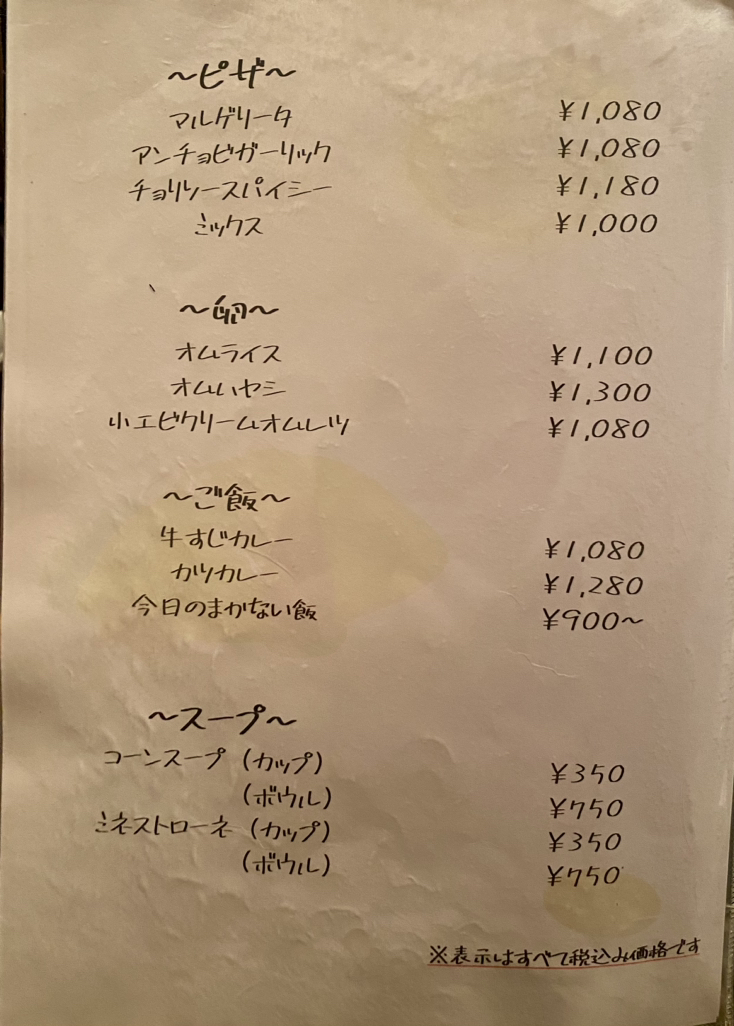 ～ピザ～
マルゲリータ ¥1,080
アンチョビガーリック ¥1,080
チョリソースパイシー ¥1,180
ミックス ¥1,000
～卵～
オムライス ¥1,100
オムハヤシ ¥1,300
小エビクリームオムレツ ¥1,080
～ご飯～
牛すじカレー ¥1,080
カツカレー ¥1,280
今日のまかない飯 ¥900～
～スープ～
コーンスープ (カップ) ¥350
(ボウル) ¥750
ミネストローネ (カップ) ¥350
(ボウル) ¥750
※表示はすべて税込み価格です